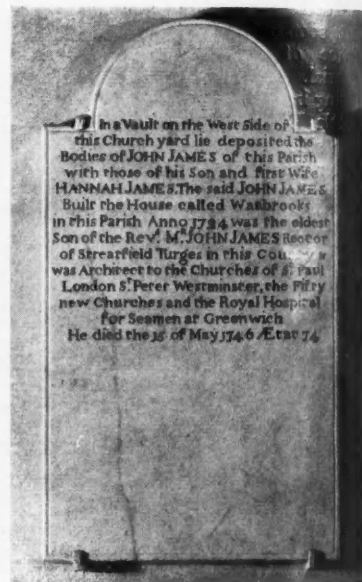 In a Vault on the West Side of
this Church yard lie deposited the
Bodies of JOHN JAMES of this Parish
with those of his Son and first Wife
HANNAH JAMES. The said JOHN JAMES
Built the House called Warbrooks
in this Parish Anno 1724 was the eldest
Son of the Rev.ᵈ Mʳ JOHN JAMES Rector
of Stratfield Turges in this
was Architect to the Churches of Sᵗ Paul
London Sᵗ Peter Westminster, the Fifty
new Churches and the Royal Hospital
for Seamen at Greenwich
He died the 15 of May 1746 Ætat 74